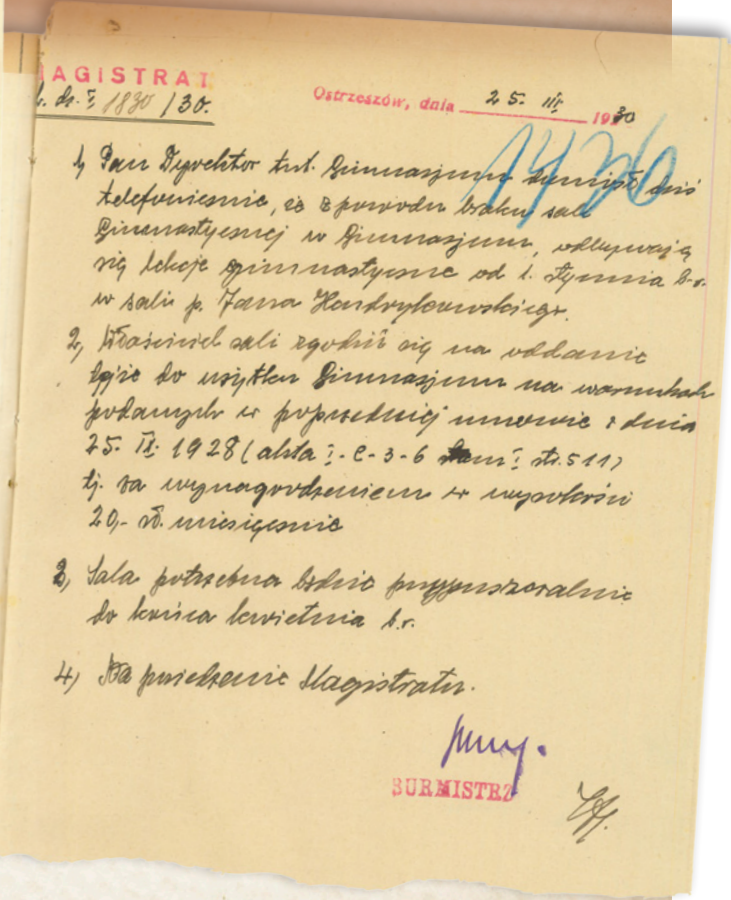 MAGISTRAT
L. dz. I 1830/30.
Ostrzeszów, dnia 25. III. 1930
1426
1, Pan Dyrektor tut. Gimnazjum dziś
telefonicznie, że z powodu braku sali
Gimnastycznej w Gimnazjum, odbywają
się lekcje gimnastyczne od 1. stycznia b.r.
w sali p. Jana Hendrykowskiego.
2, Właściciel sali zgodził się na oddanie
tejże do użytku Gimnazjum na warunkach
podanych w poprzedniej umowie z dnia
25. IX. 1928 (akta I-C-3-6 tom I str. 511)
tj. za wynagrodzeniem w wysokości
20,- zł. miesięcznie
3, Sala potrzebna będzie przypuszczalnie
do końca kwietnia b.r.
4, Na posiedzenie Magistratu.
BURMISTRZ